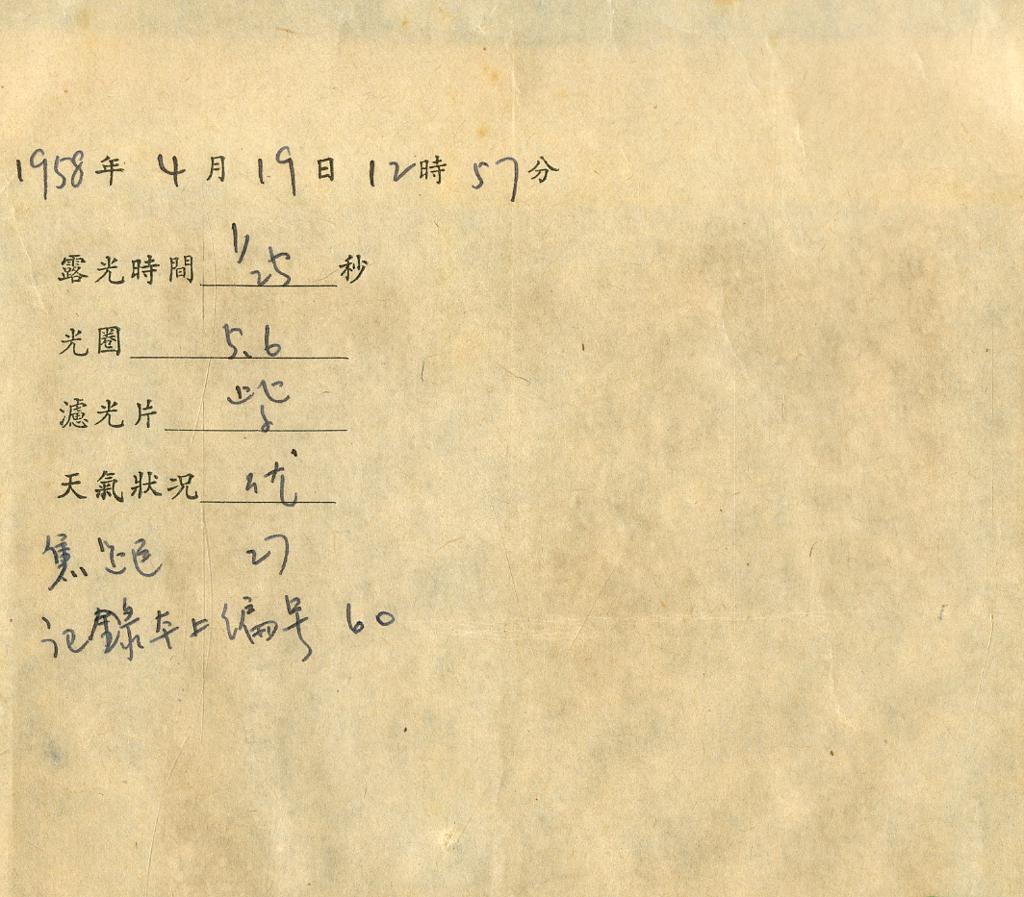 1958年 4月 19日 12時 57分
露光時間 1/25 秒
光圈 5.6
濾光片 紫
天氣狀況 优
焦距 27
记錄本上编号 60